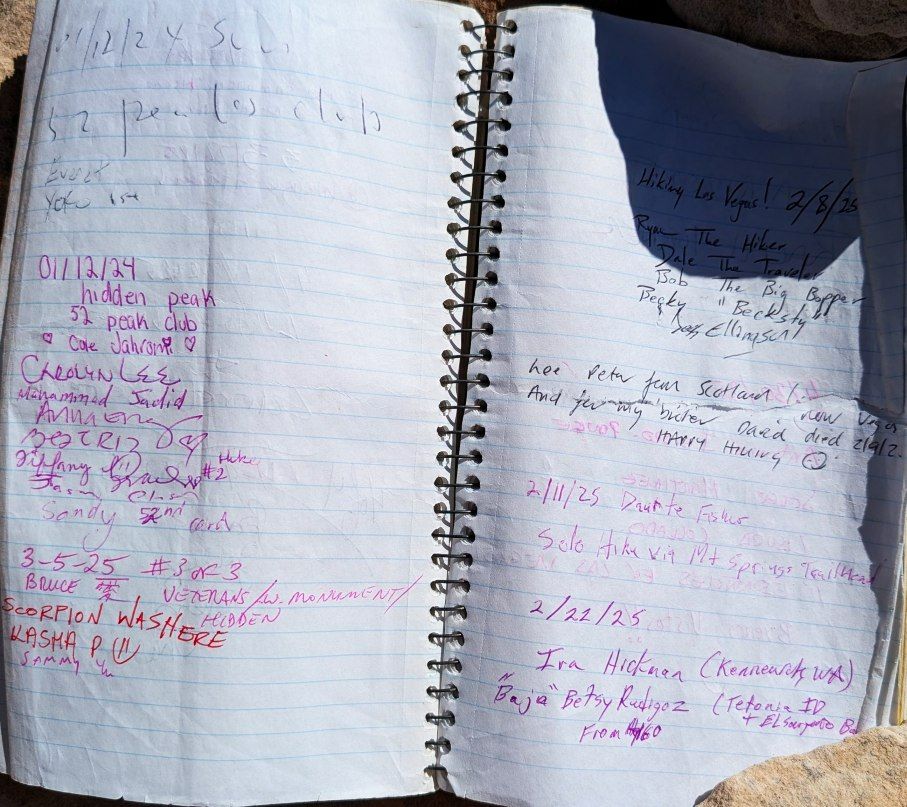 01/12/24 Sun.
52 peaks club
01/12/24
hidden peak
52 peak club
♡ Cole Jahromi ♡
CAROLYN LEE
Mohammed Jadid
Anna
BEATRIZ
Tiffany
Hike
#2
Sandy 52nd card
3-5-25 #3 OF 3
BRUCE VETERANS/W. MONUMENT/
HIDDEN
SCORPION WAS HERE
KASHA P
SAMMY Yu
Hiking Las Vegas! 2/8/25
Ryan The Hiker
Dale The Traveler
Bob The Big Bopper
Becky "Becksty"
Ellingson
Lee Peter from Scotland now Vegas
And for my brother David died 2/9/2.
HAPPY HIKING ☺
2/11/25 Dante Fisher
Solo Hike via Mt Springs Trailhead
2/22/25
Ira Hickman (Kennewick, WA)
"Baja" Betsy Rudigoz (Tetonia ID
+ El Sargento Ba
From 160